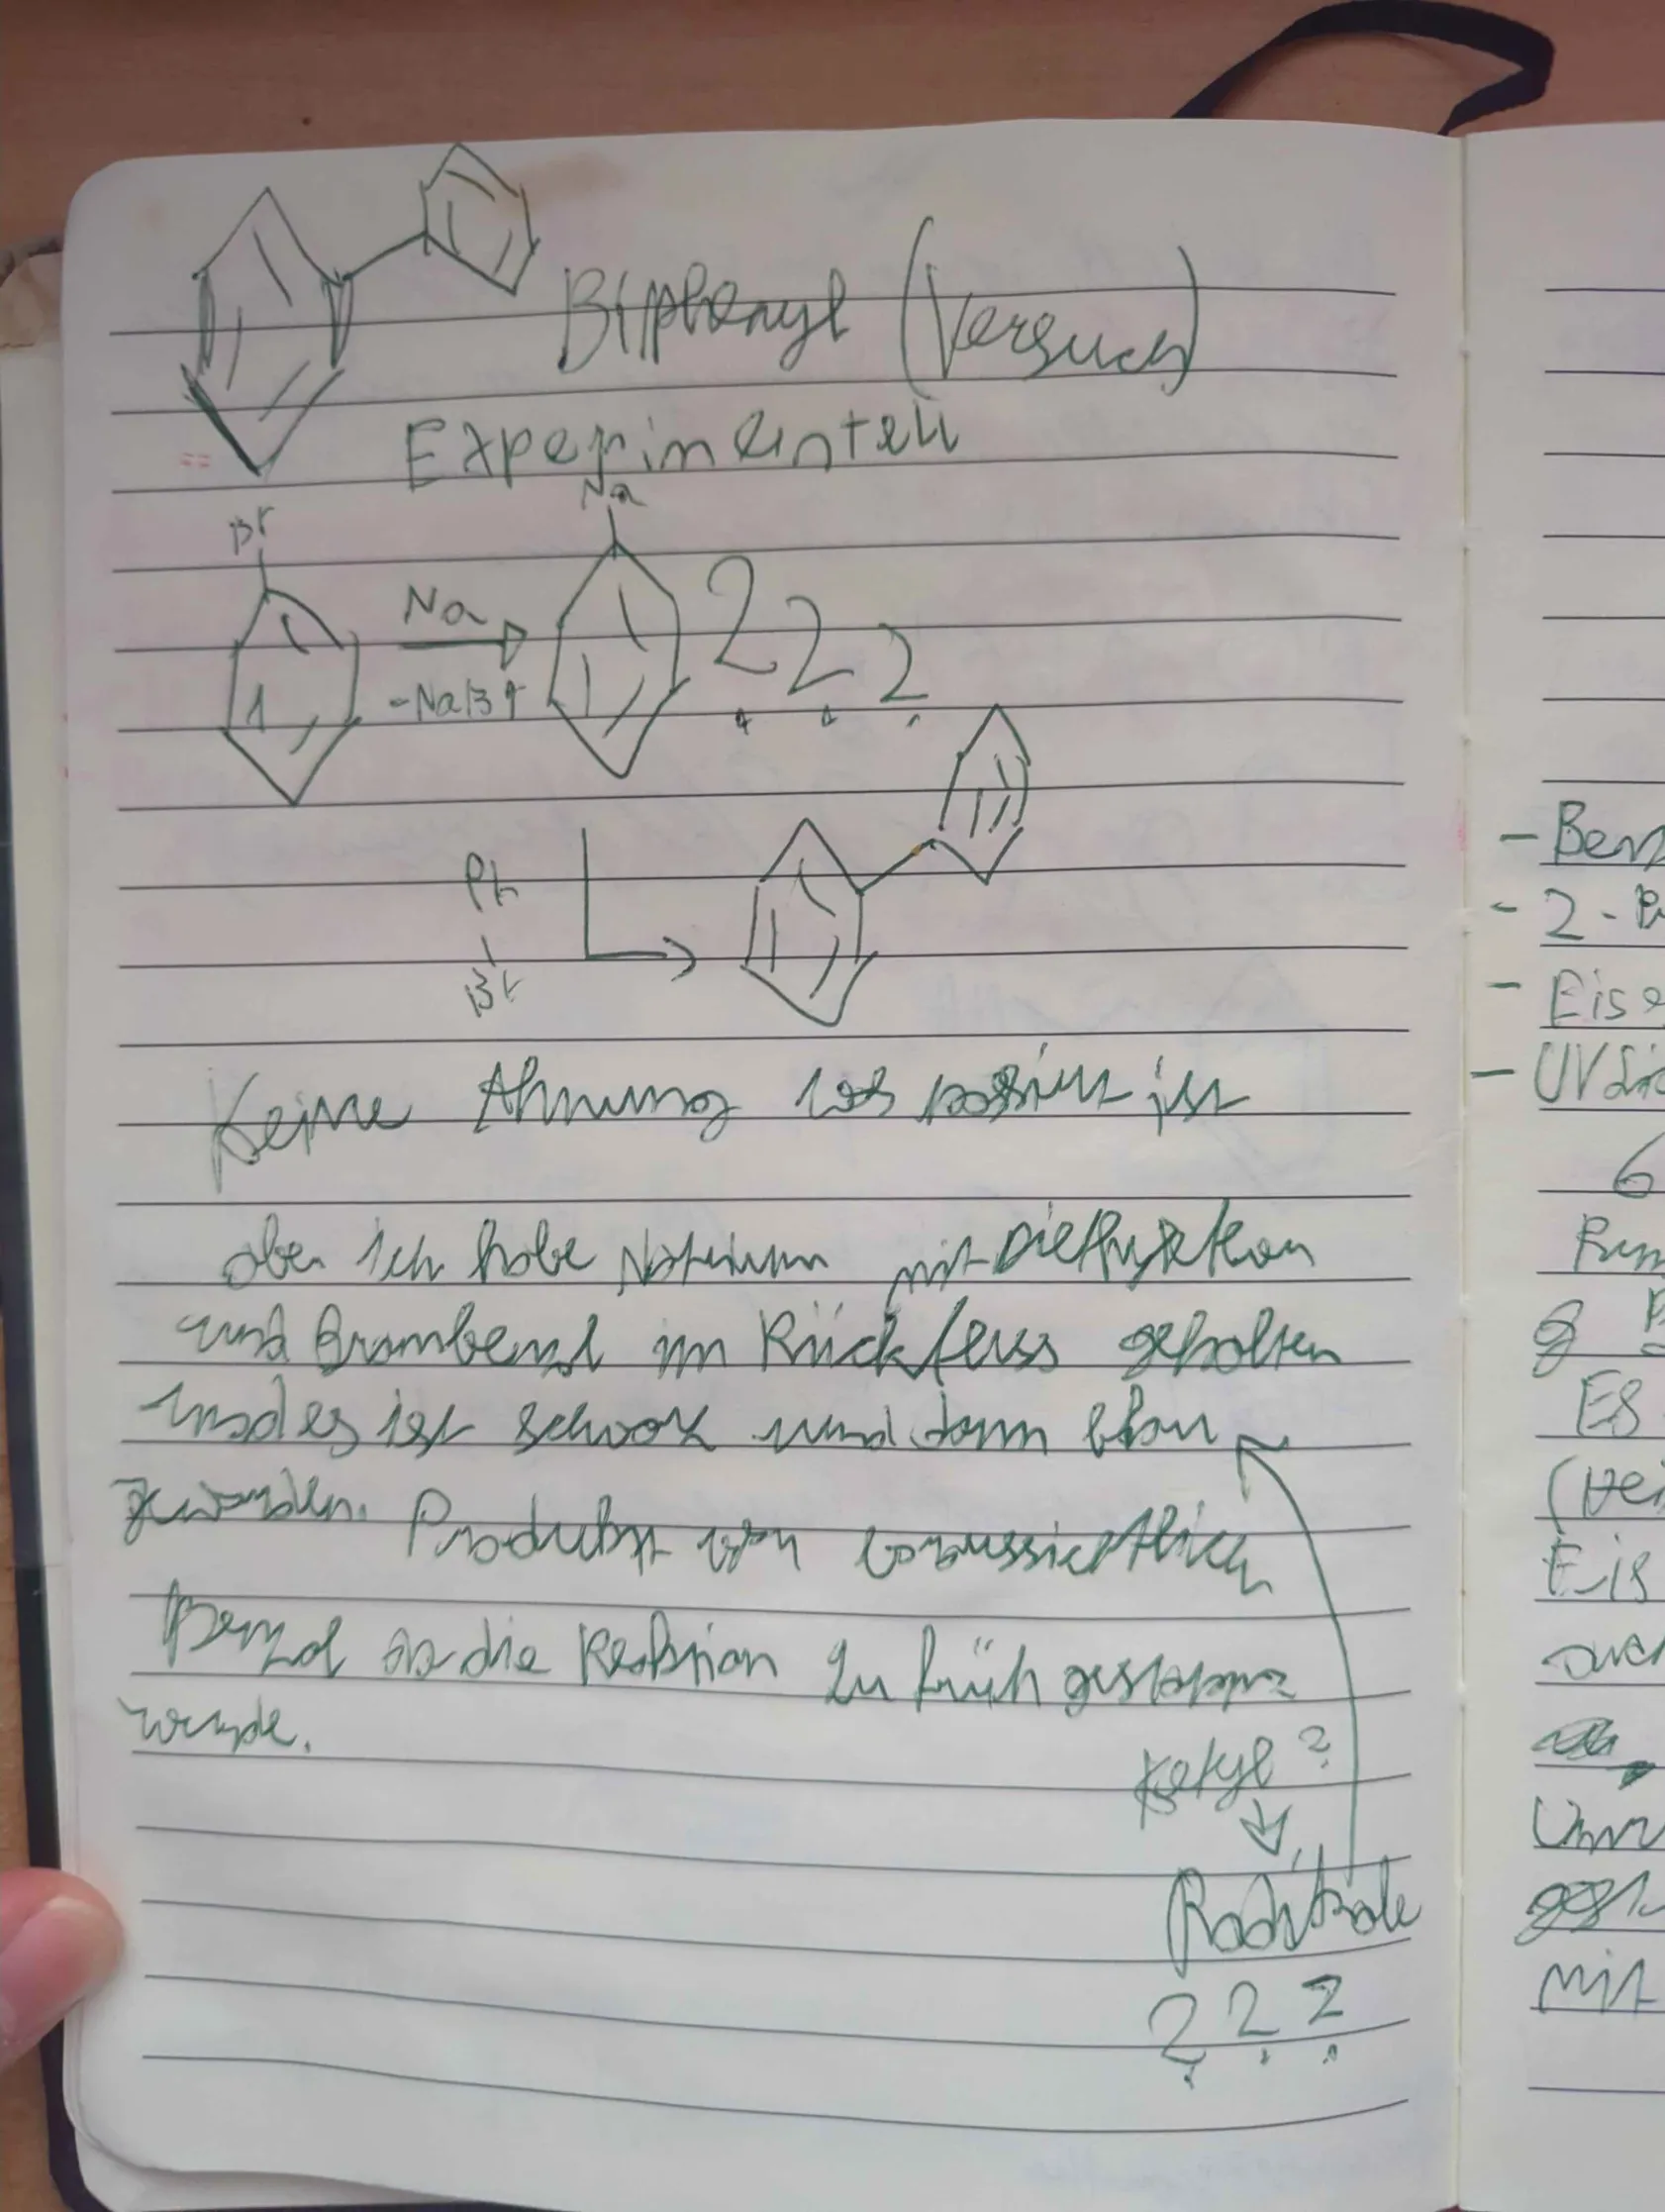 Biphenyl (Versuch)
Experimentell
Br
Na
Na
-NaBr
???
Ph
Br
Keine Ahnung was passiert ist
aber ich habe Natrium mit Diethylether
und Brombenzol im Rückfluss gehalten
und es ist schwarz und dann blau
geworden. Produkt war voraussichtlich
Benzol da die Reaktion zu früh gestoppt
wurde.
Ketyl?
Radikale
???
- Benz
- 2-
- Eise
- UV Li
6
ES
(
Eis
auch
mit